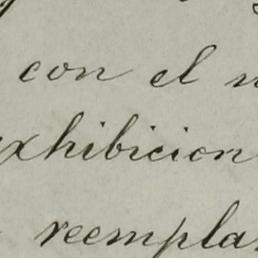 con el
exhibicion
reempla